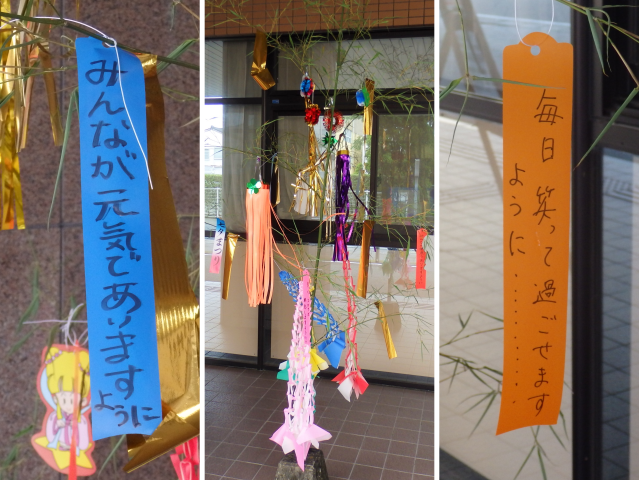 みんなが元気でありますように
七夕まつり
毎日笑って過ごせます
ように・・・・・・・・・